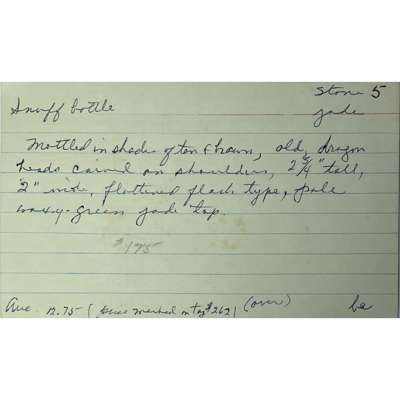 Stone 5
Snuff bottle jade
Mottled in shades of tan & brown, old, dragon
heads carved on shoulders, 2 1/4" tall,
2" wide, flattened flask type, pale
waxy-green jade top.
$195
Ave. 12.75 (price marked on tag $262) (over) ba